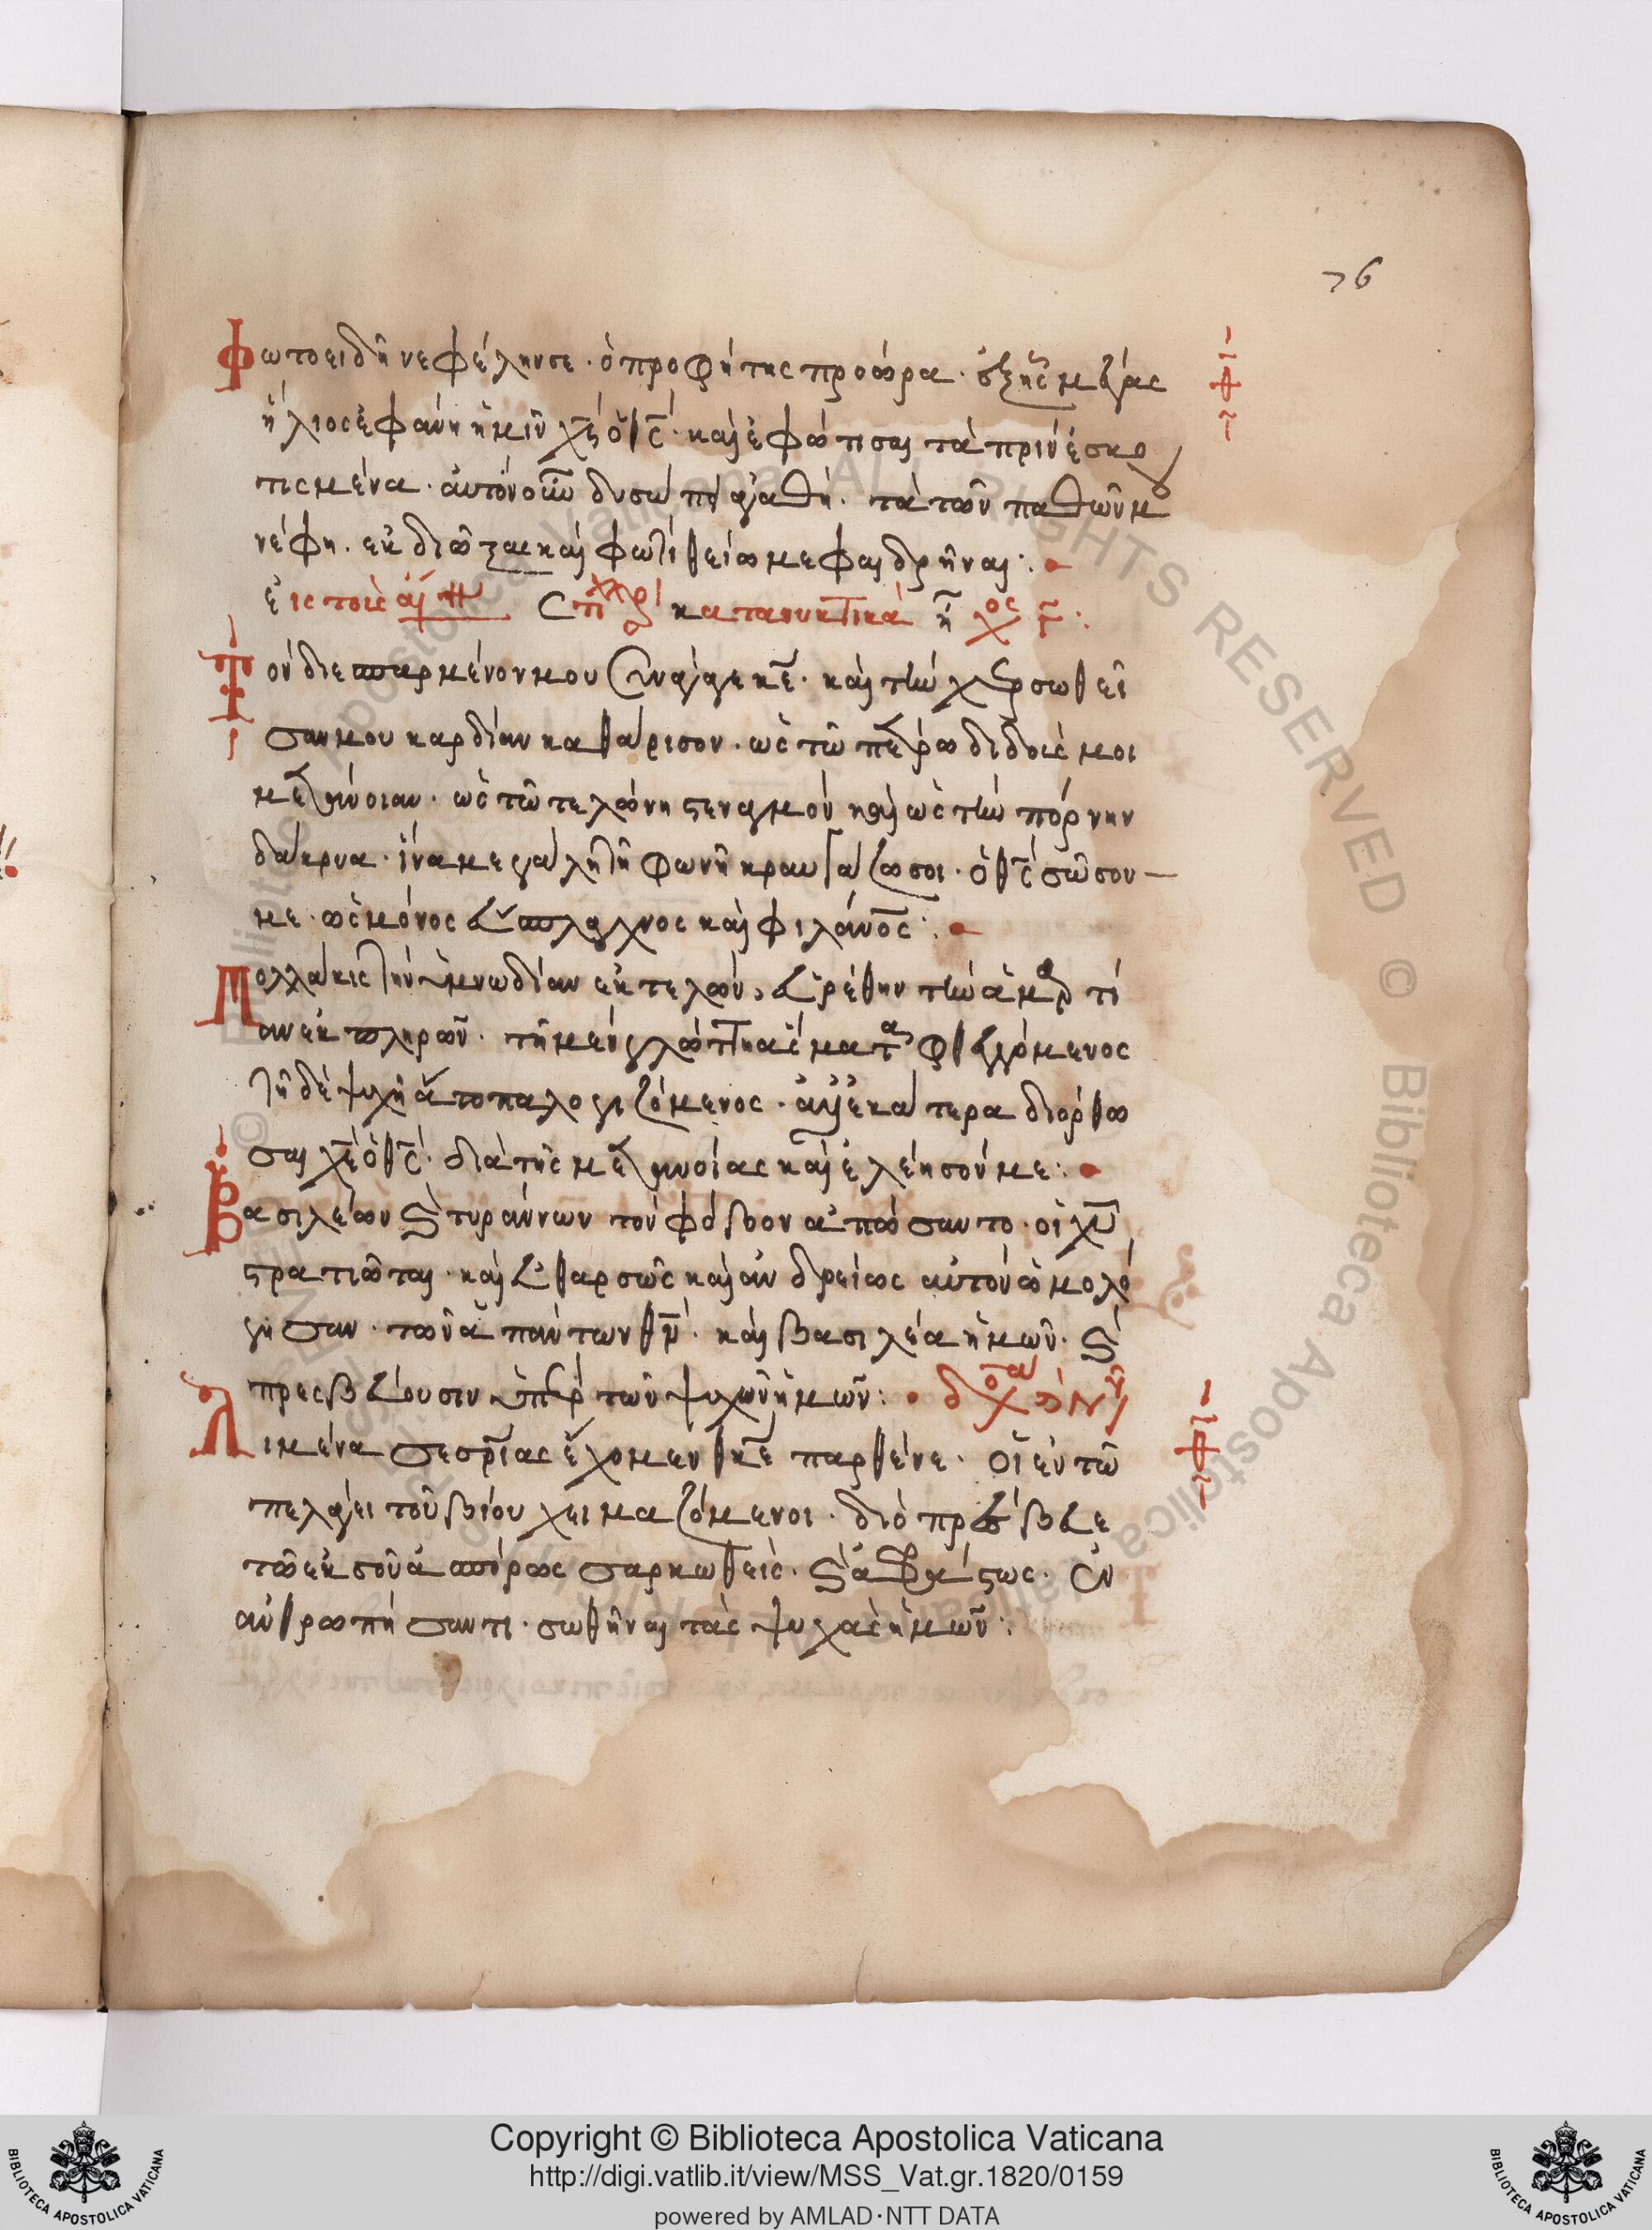 76
Φωτοειδῆ νεφέλην σε · ὁ προφήτης προώρα · ἐξ ἧς μέγας
ἥλιος ἐφάνη ἡμῖν χς ὁ θς · καὶ ἐφώτισαι τὰ πρὶν ἐσκο
τισμένα · αὐτὸν οὖν δυσώπει ἀγαθή · τὰ τῶν παθῶν μου
νέφη · ἐκδιῶξαι καὶ φωτὶ θείω με φαιδρῆναι :
εἰς τοὺς αἴν στιχρ κατανυκτικά ἦχος γ :
Τὸν διεσπαρμένον μου νοῦν συνάγαγε κε · καὶ τὴν χερσωθεῖ
σαν μου καρδίαν καθάρισον · ὡς τῶ πέτρω διδούς μοι
μετάνοιαν · ὡς τῶ τελώνη στεναγμὸν καὶ ὡς τὴν πόρνην
δάκρυα · ἵνα μεγάλη τῆ φωνῆ κραυγάζω σοι · ὁ θς σῶσον
με · ὡς μόνος εὔσπλαγχνος καὶ φιλάνος :
Πολλάκις τὴν ὑμνωδίαν ἐκτελῶν, εὑρέθην τὴν ἁμαρτί
αν ἐκπληρῶν · τῆ μὲν γλώττη ἄσματα φθεγγόμενος
τῆ δὲ ψυχῆ ἄτοπα λογιζόμενος · ἀλλ' ἑκάτερα διόρθω
σαι χε ὁ θς · διὰ τῆς μετανοίας καὶ ἐλέησόν με :
Βασιλέων καὶ τυράννων τὸν φόβον ἀπώσαντο · οἱ χυ
στρατιῶται · καὶ εὐθαρσῶς καὶ ἀνδρείως αὐτὸν ὡμολό
γησαν · τῶν ἁπάντων θν · καὶ βασιλέα ἡμῶν · καὶ
πρεσβεύουσιν ὑπὲρ τῶν ψυχῶν ἡμῶν : δόξα καὶ νῦν
Λιμένα σε σρίας ἔχομεν θκε παρθένε · οἱ ἐν τῶ
πελάγει τοῦ βίου χειμαζόμενοι · διὸ πρέσβευε
τῶ ἐκ σοῦ ἀσπόρως σαρκωθεὶς · καὶ ἀτρέπτως · ἐν
ανθρωπήσαντι · σωθῆναι τὰς ψυχὰς ἡμῶν :
Copyright © Biblioteca Apostolica Vaticana
http://digi.vatlib.it/view/MSS_Vat.gr.1820/0159
powered by AMLAD·NTT DATA